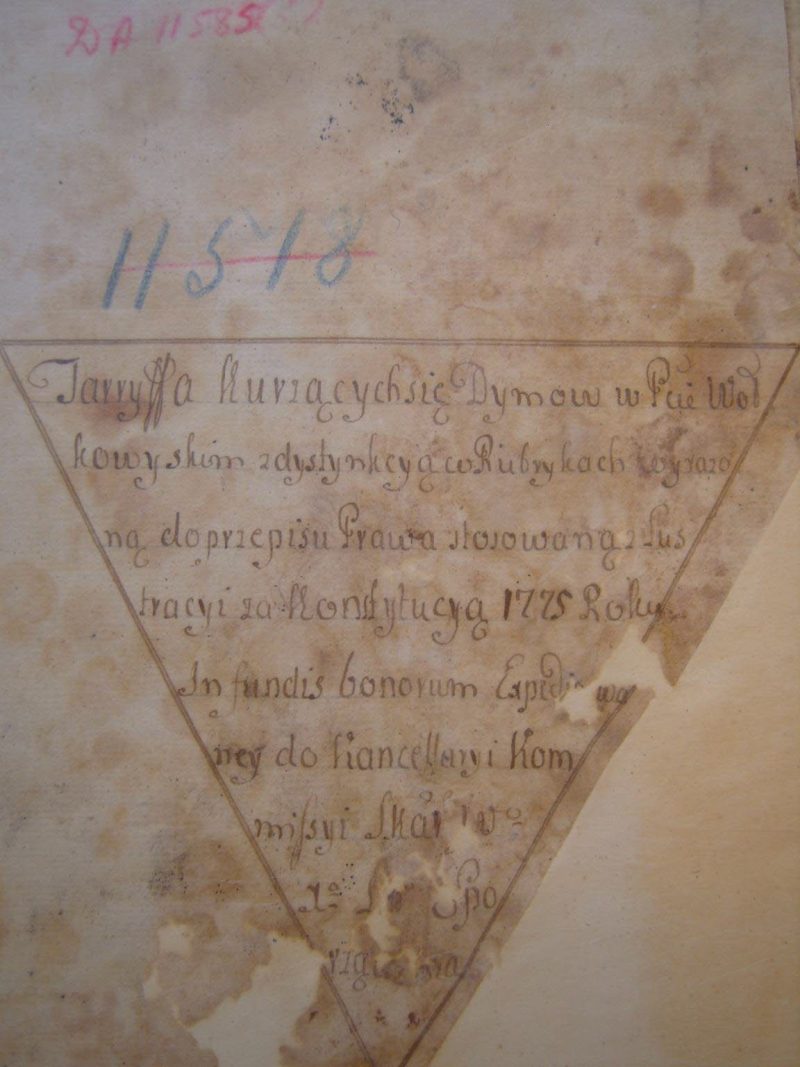 DA 11585
11518
Tarryffa Kurzących się Dymow w Pcie Woł
kowyskim z dystynkcyą w Rubrykach wyrażo
ną do przepisu Prawa stosowaną z Lus
tracyi za Konstytucyą 1775 Roku
In fundis bonorum
ney do Kancellaryi Kom
missyi Skar
Spo